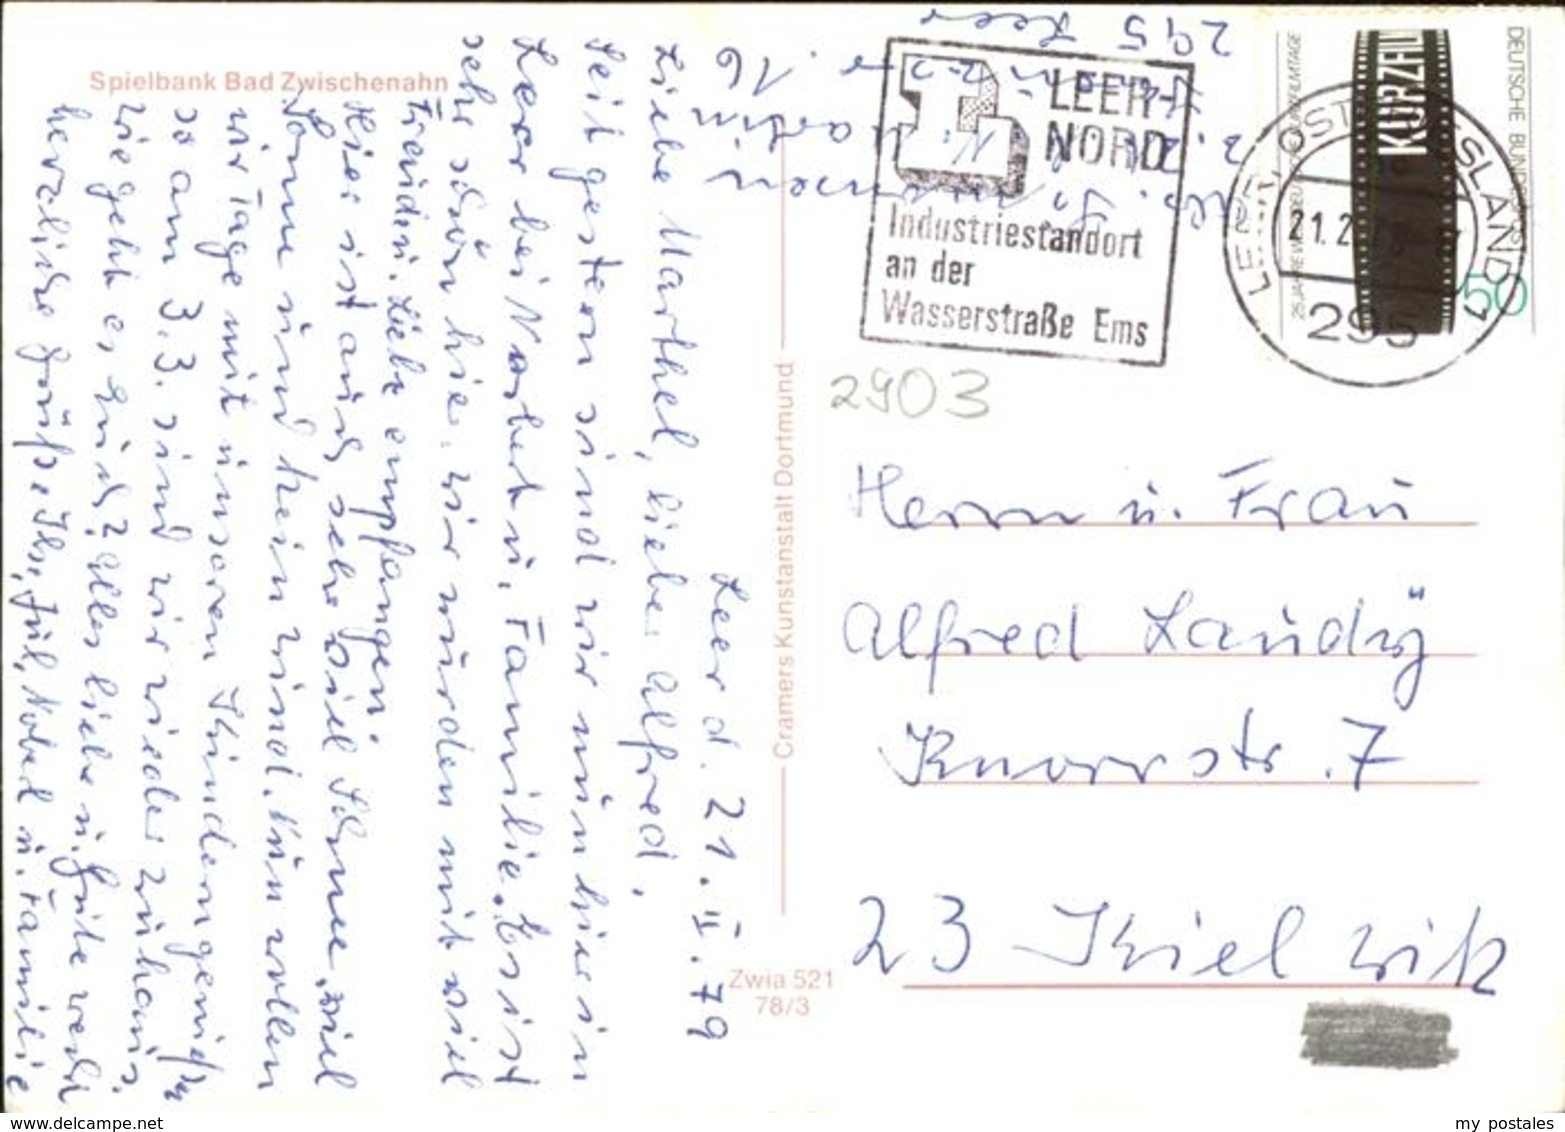 Spielbank Bad Zwischenahn
Leer d. 21. II. 79
Liebe Marthel, lieber Alfred,
Seit gestern sind wir nun hier in
Leer bei Norbert u. Familie. Es ist
sehr schön hier. Wir wurden mit viel
Freude u. Liebe empfangen.
Hier ist auch sehr viel Schnee, viel
Sonne und kein Wind. Nun wollen
wir Tage mit unseren Kindern genießen
so am 3.3. sind wir wieder zuhaus.
Wie geht es Euch? Alles liebe u. Gute
herzliche Grüße Ihr, Jul, Nobert u. Familie
Cramers Kunstanstalt Dortmund
Zwia 521
78/3
16
295 Leer
LEER-
NORD
Industriestandort
an der
Wasserstraße Ems
DEUTSCHE BUNDESPOST
KURZFILM
50
LEER, OSTFRIESLAND 1
21.2
295
2903
Herrn u. Frau
Alfred Laudy
Knorrstr. 7
23 Kiel Wik
my postales